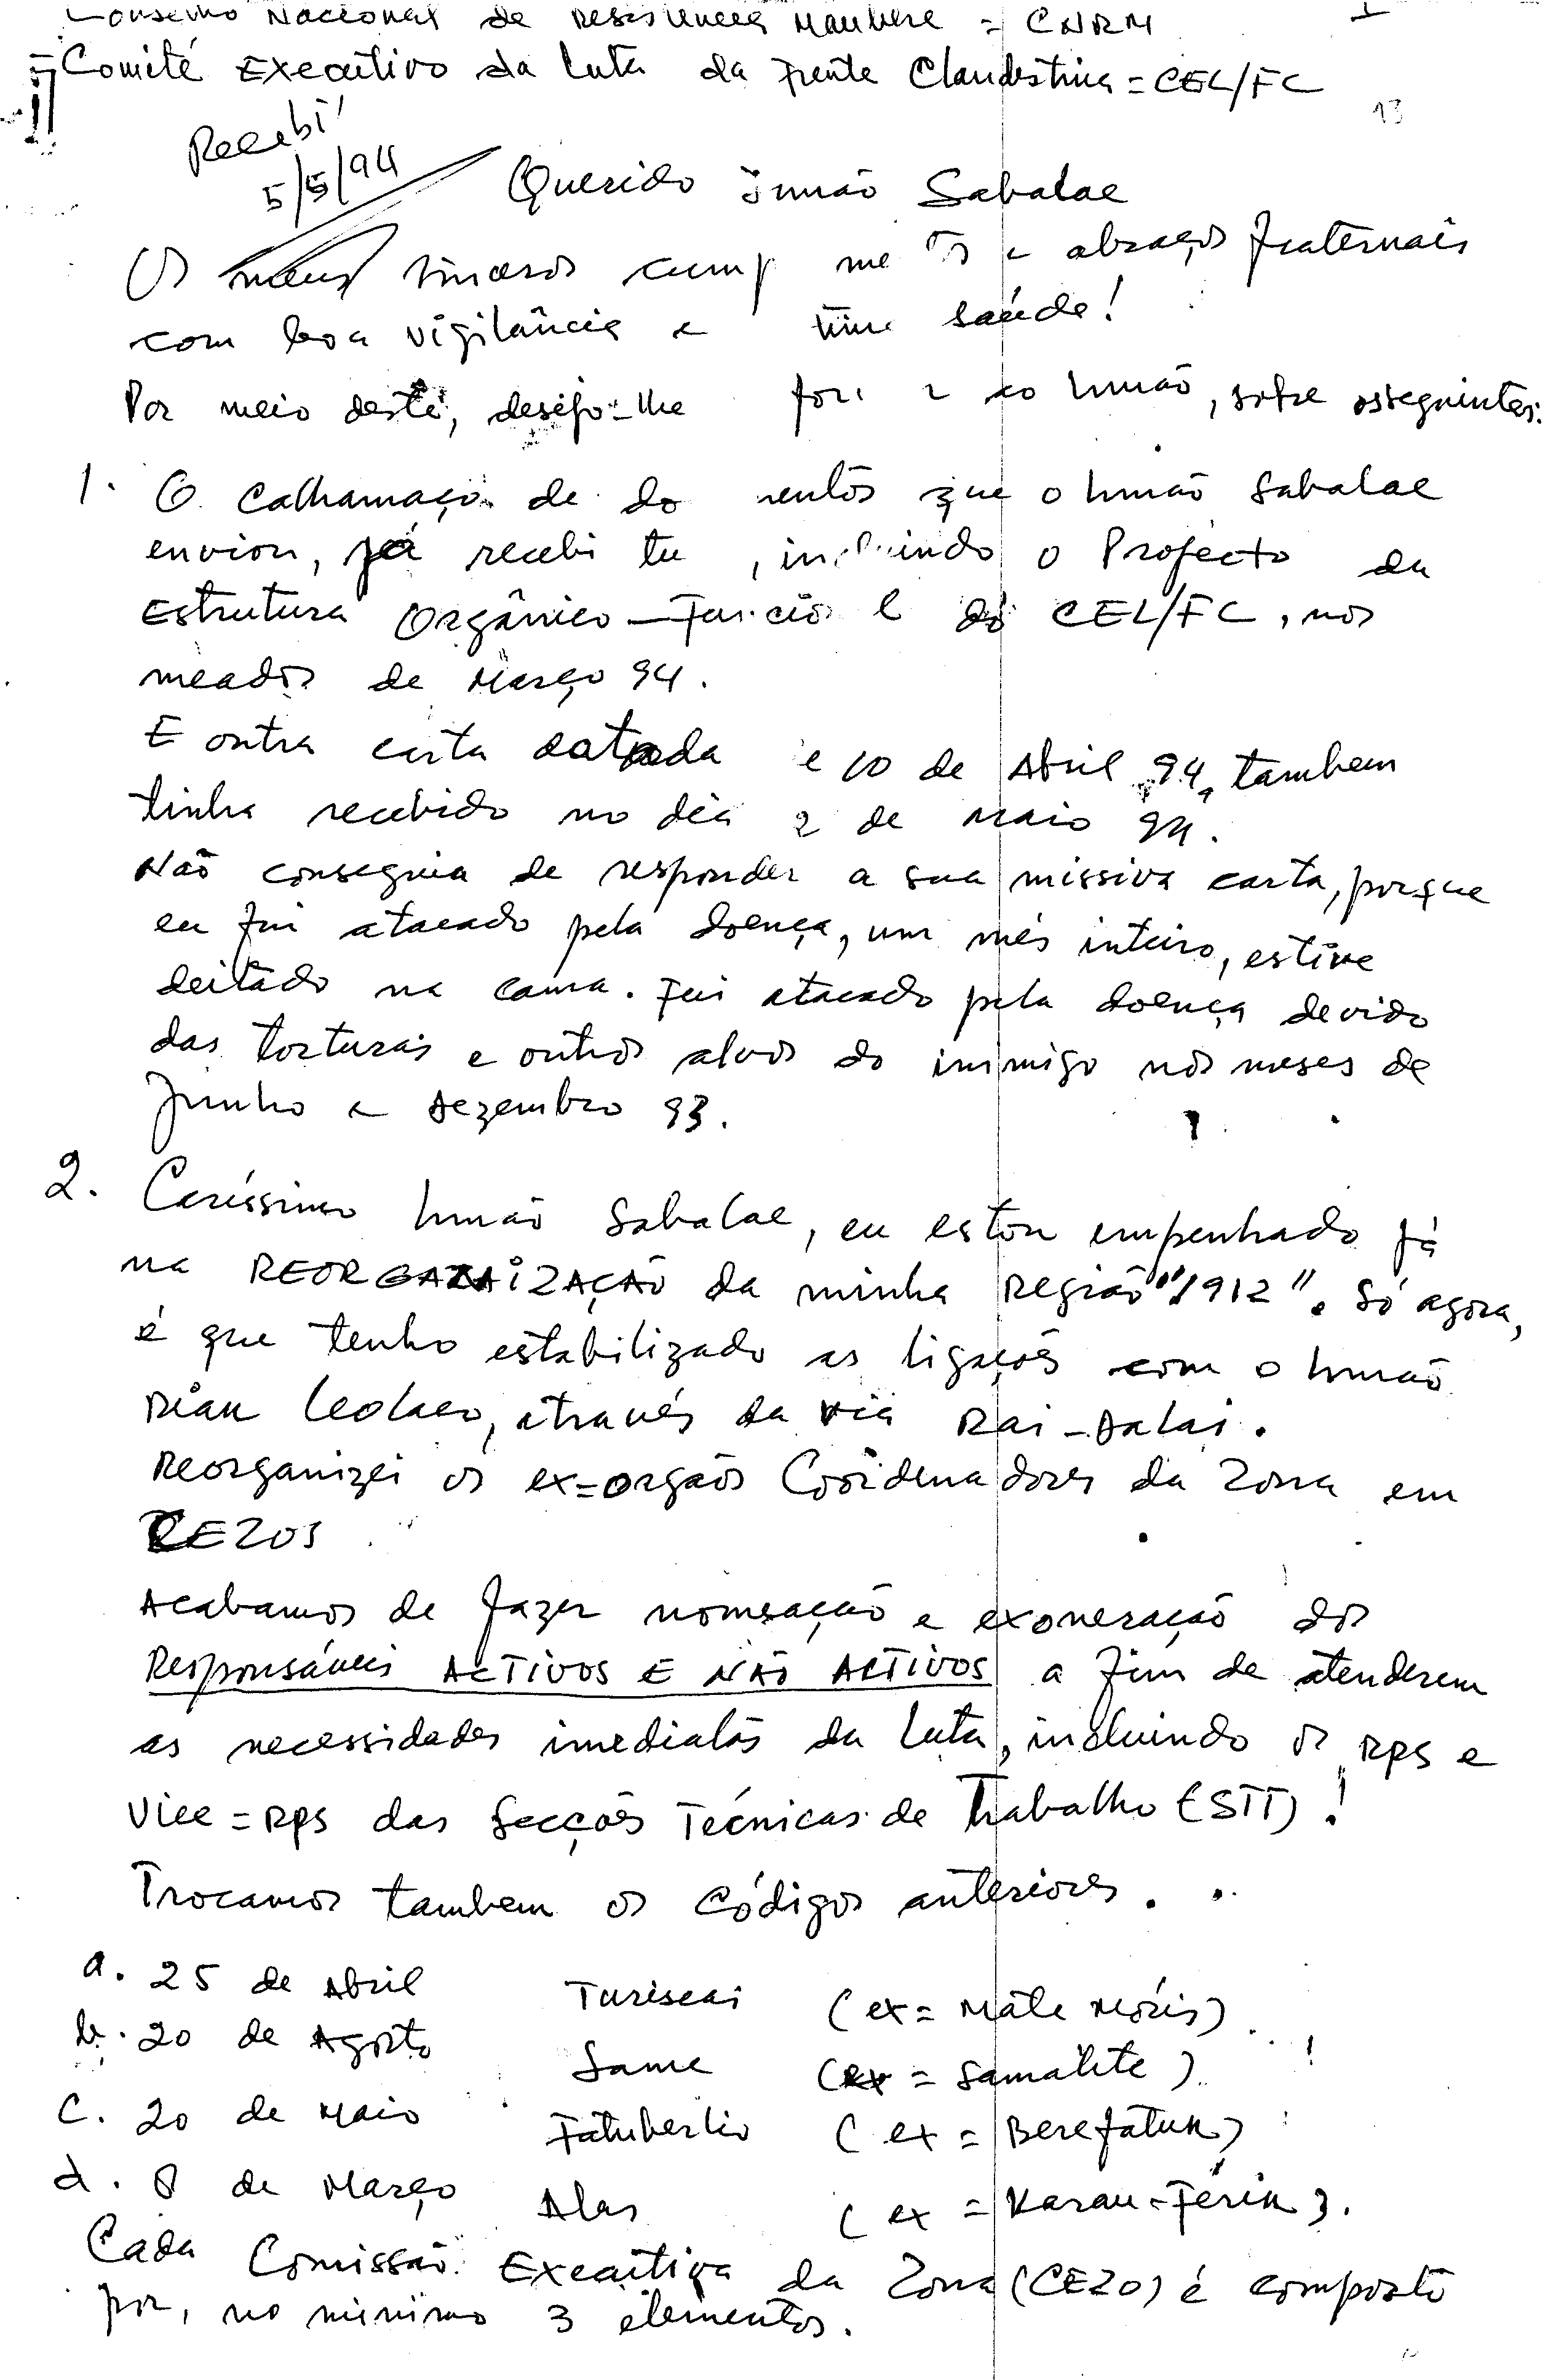 Conselho Nacional de Resistência Maubere = CNRM
Comité Executivo da Luta da Frente Clandestina = CEL/FC
13
Recebi
5/5/94
Querido irmão Sabalae
Os meus sinceros cump me os e abraços fraternais
com boa vigilância e saúde!
Por meio deste, desejo-lhe ao Irmão, sobre osseguintes:
1. O calhamaço de do mentos que o Irmão Sabalae
enviou, já recebi tu , incluindo o Projecto da
Estrutura Orgânico-Funcio l do CEL/FC, nos
meados de Março 94.
E outra carta datada e 10 de Abril 94, tambem
tinha recebido no dia 2 de Maio 94.
Não conseguia de responder a sua missiva carta, porque
eu fui atacado pela doença, um mês inteiro, estive
deitado na cama. Fui atacado pela doença devido
das torturas e outros alvos do inimigo nos meses de
Junho e Dezembro 93.
2. Caríssimo Irmão Sabalae, eu estou empenhado já
na REORGANIZAÇÃO da minha Região "1912". Só agora,
é que tenho estabilizado as ligações com o Irmão
através da via Rai-Dalai.
Reorganizei os ex=orgãos Coordenadores da Zona em
CEZOS
Acabamos de fazer nomeação e exoneração dos
Responsáveis ACTIVOS E NÃO ACTIVOS a fim de atenderem
as necessidades imediatas da Luta, incluindo os RPS e
Vice=RPS das Secções Técnicas de Trabalho (STT)!
Trocamos tambem os Códigos anteriores.
a. 25 de Abril Turiscai (ex= Mate Móris)
b. 20 de Agosto Same (ex = Samalete)
c. 20 de Maio Fatuberlio (ex = Berefatuk)
d. 8 de Março Alas (ex = Karau-Férik).
Cada Comissão Executiva da Zona (CEZO) é composto
por, no minimo 3 elementos.